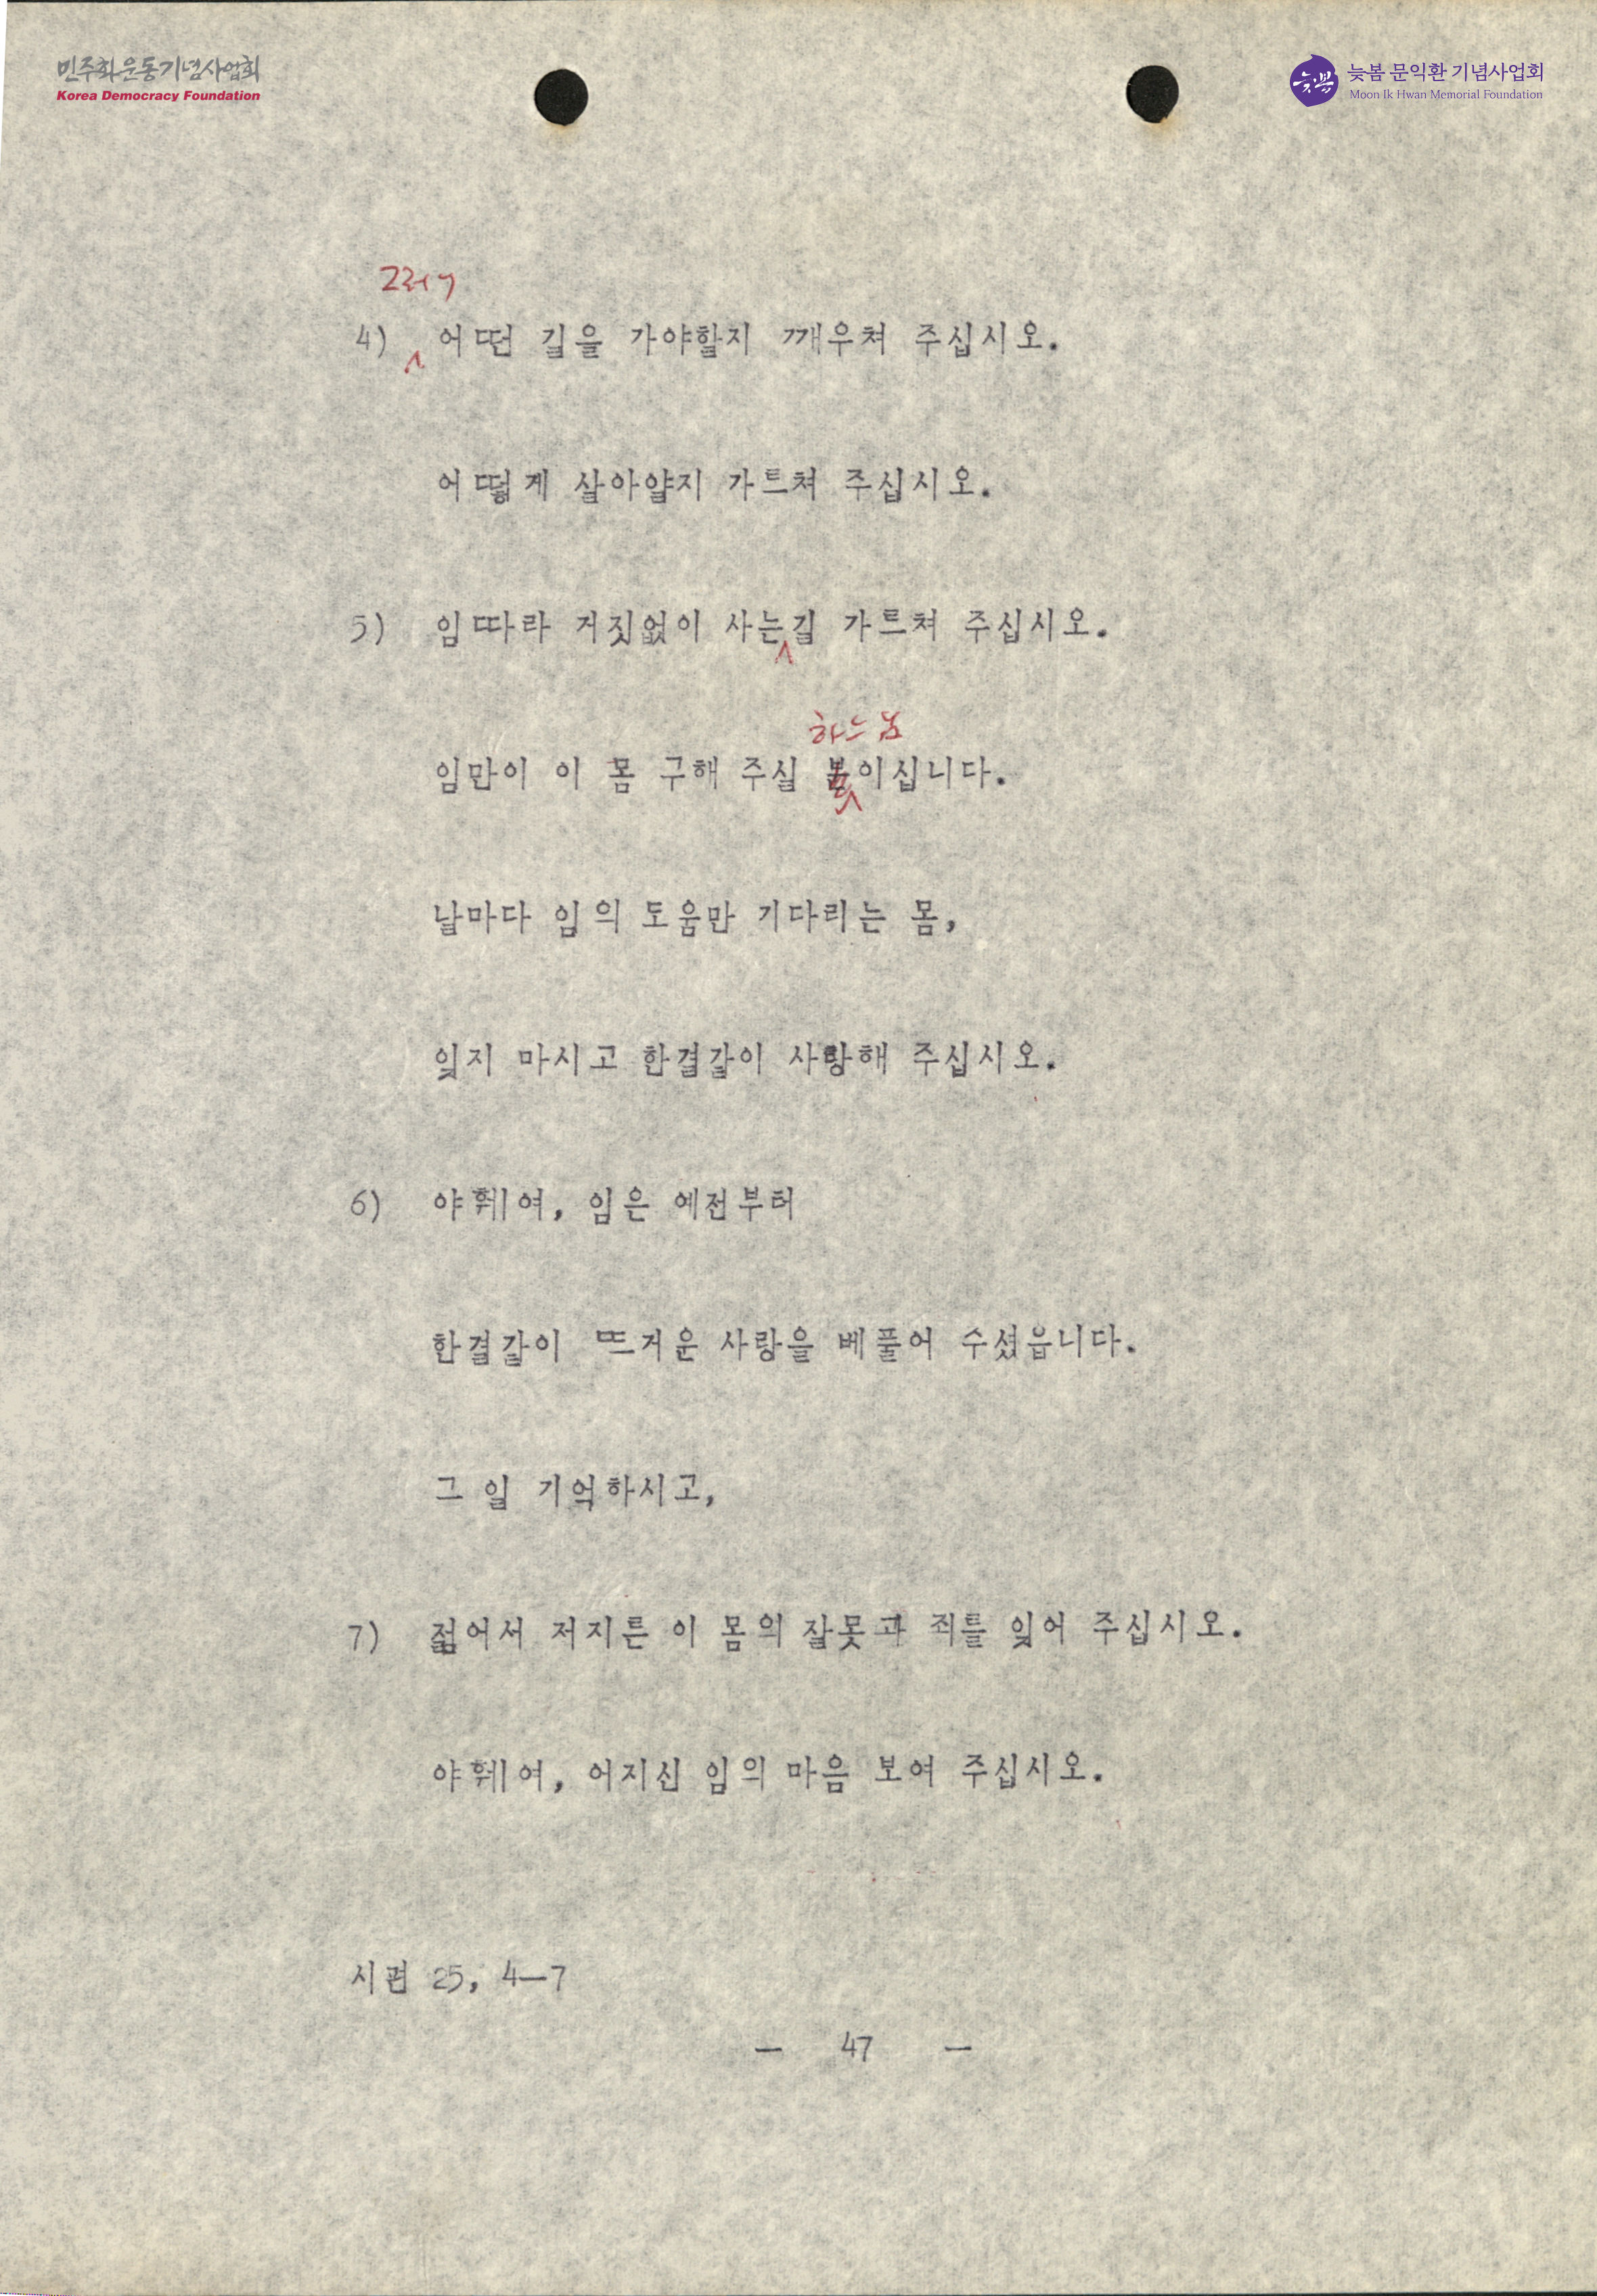 민주화운동기념사업회
Korea Democracy Foundation
늦봄 문익환 기념사업회
Moon Ik Hwan Memorial Foundation
그러니
4) 어떤 길을 가야할지 깨우쳐 주십시오.
어떻게 살아얄지 가르쳐 주십시오.
5) 임따라 거짓없이 사는길 가르쳐 주십시오.
하느님
임만이 이 몸 구해 주실 분이십니다.
날마다 임의 도움만 기다리는 몸,
잊지 마시고 한결같이 사랑해 주십시오.
6) 야훼여, 임은 예전부터
한결같이 뜨거운 사랑을 베풀어 주셨읍니다.
그 일 기억하시고,
7) 젊어서 저지른 이 몸의 잘못과 죄를 잊어 주십시오.
야훼여, 어지신 임의 마음 보여 주십시오.
시편 25, 4—7
— 47 —